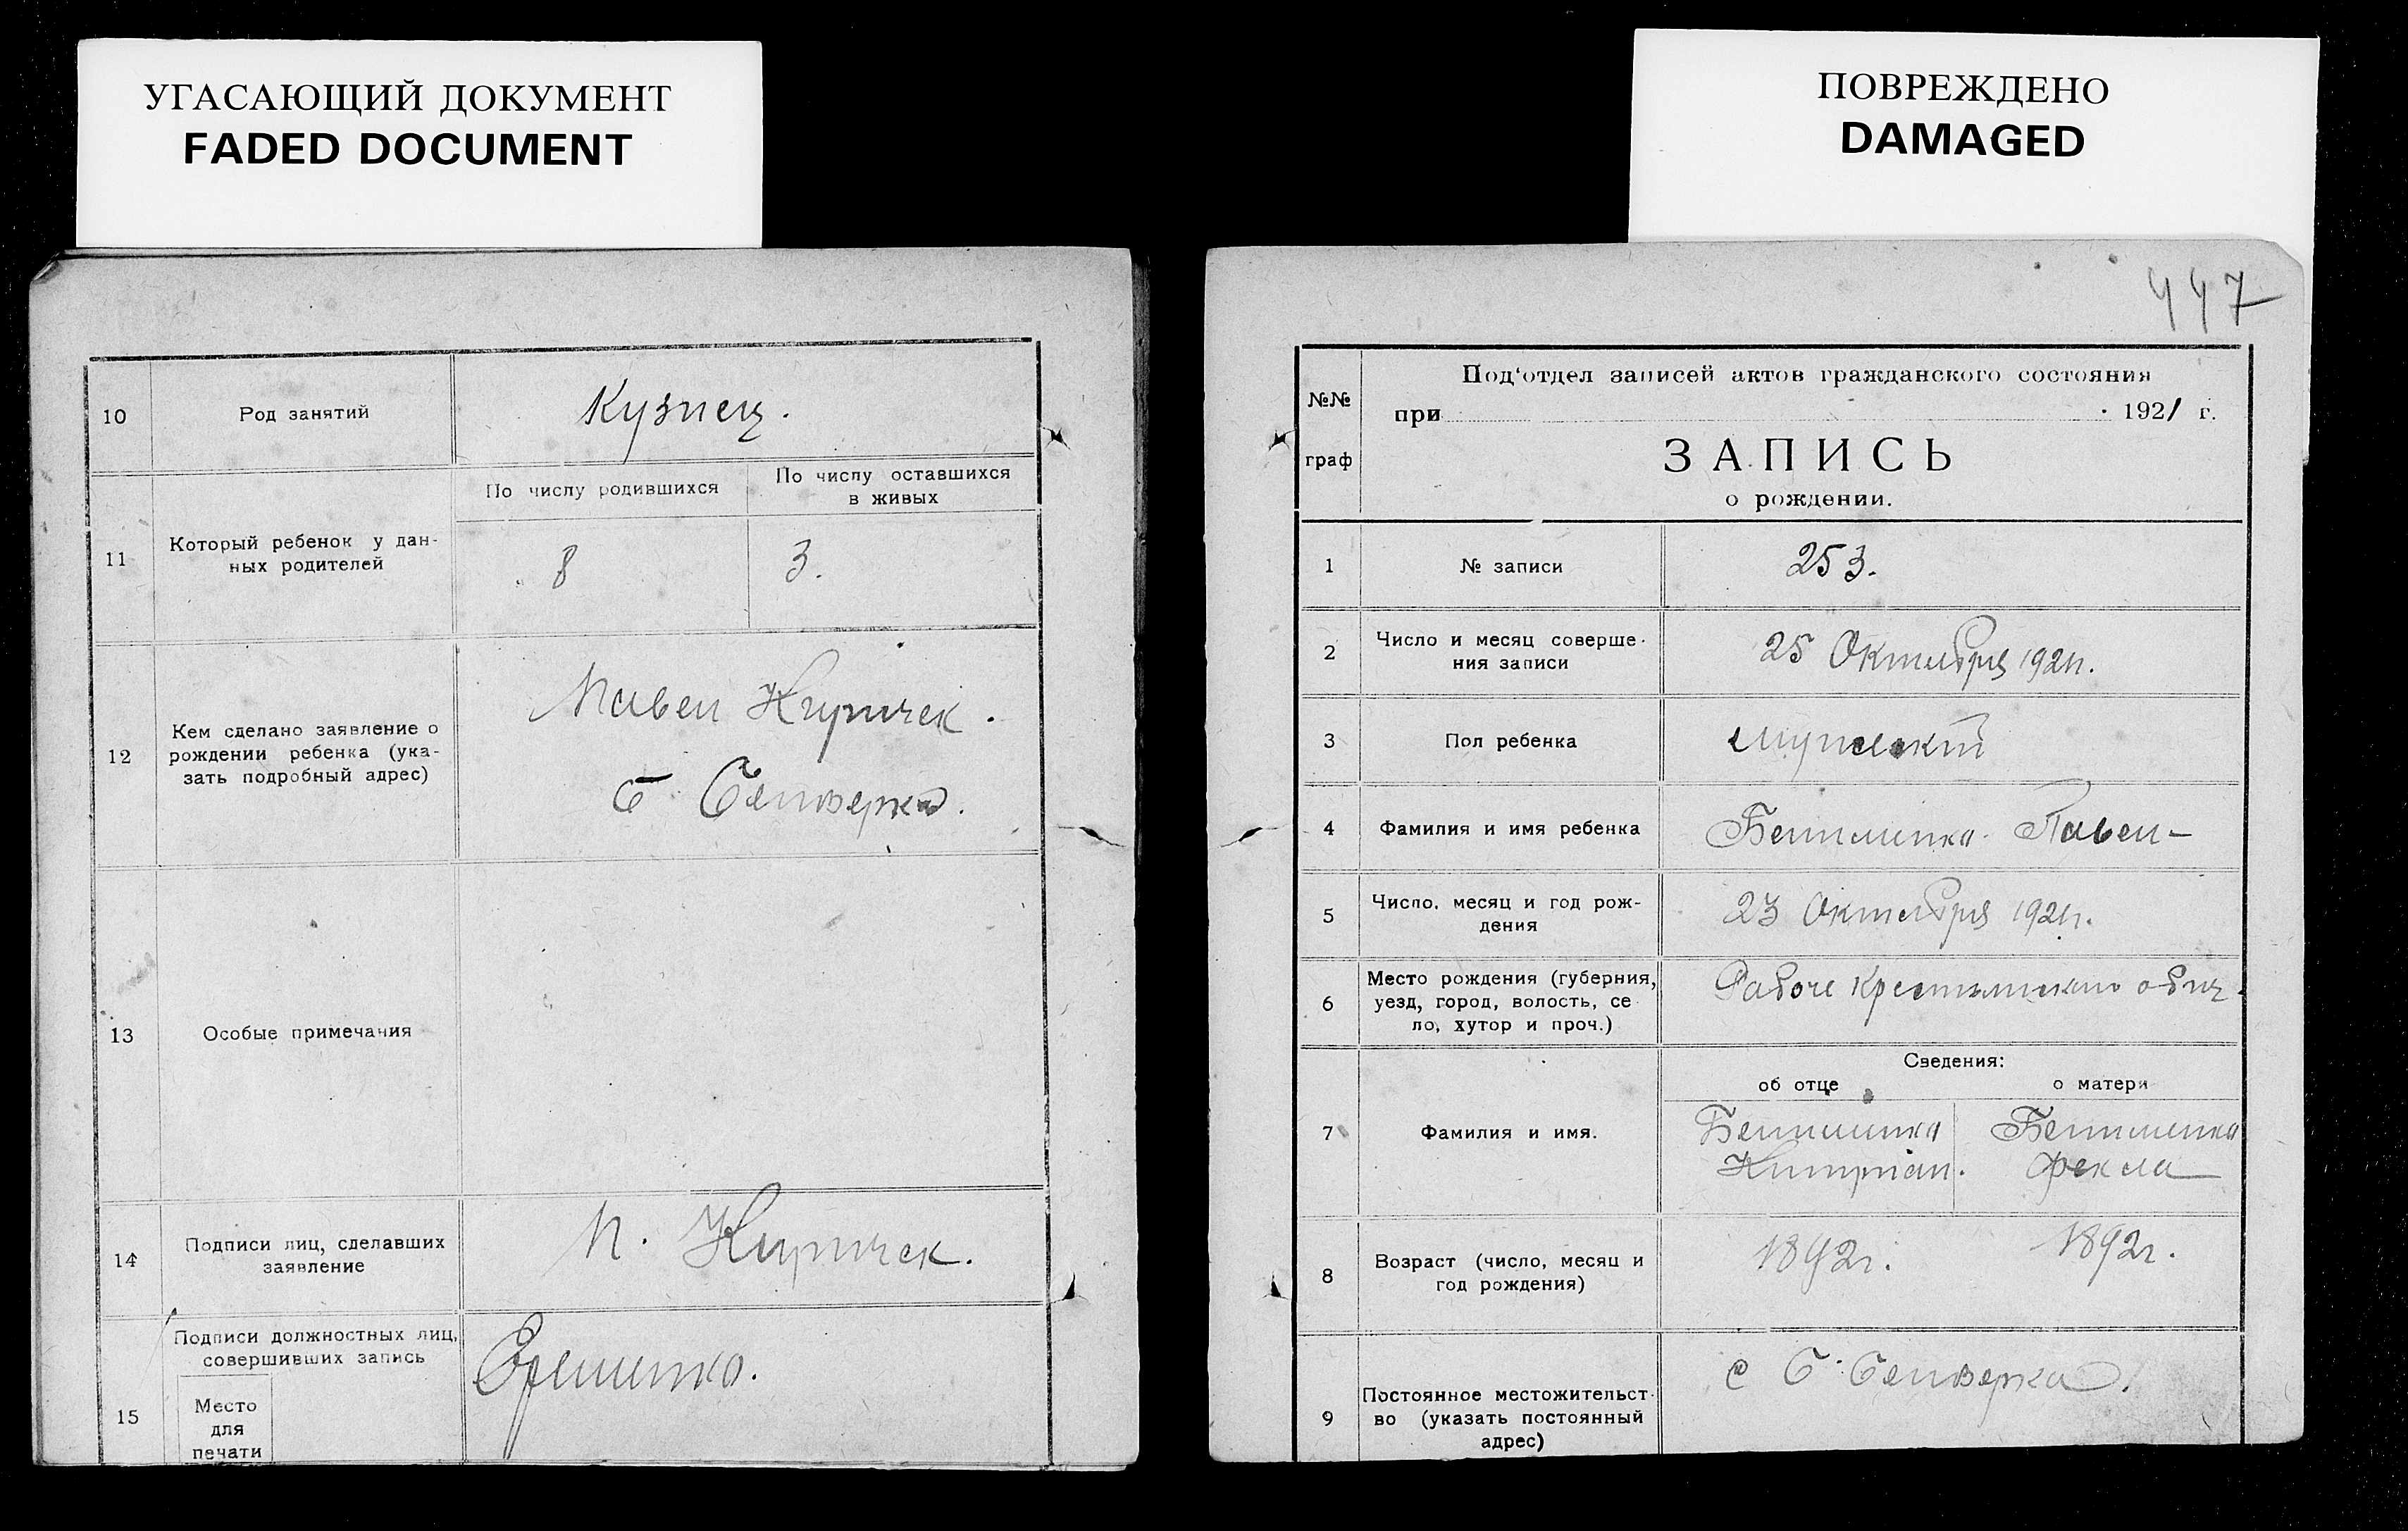 УГАСАЮЩИЙ ДОКУМЕНТ
FADED DOCUMENT
10
Род занятий
Кузнец.
11
Который ребенок у дан-
ных родителей
По числу родившихся
По числу оставшихся
в живых
8
3.
12
Кем сделано заявление о
рождении ребенка (ука-
зать подробный адрес)
Павел Киричек.
13
Особые примечания
14
Подписи лиц, сделавших
заявление
П. Киричек.
15
Подписи должностных лиц,
совершивших запись
Место
для
печати
ПОВРЕЖДЕНО
DAMAGED
447
№№
граф
Под'отдел записей актов гражданского состояния
при 1921 г.
ЗАПИСЬ
о рождении.
1
№ записи
253.
2
Число и месяц соверше-
ния записи
25 Октября 1921г.
3
Пол ребенка
мужской
4
Фамилия и имя ребенка
Павел
5
Число, месяц и год рож-
дения
23 Октября 1921г.
6
Место рождения (губерния,
уезд, город, волость, се
ло, хутор и проч.)
7
Фамилия и имя.
Сведения:
об отце
о матери
Киприан.
Фекла
8
Возраст (число, месяц и
год рождения)
1892г.
1892г.
9
Постоянное местожительст-
во (указать постоянный
адрес)